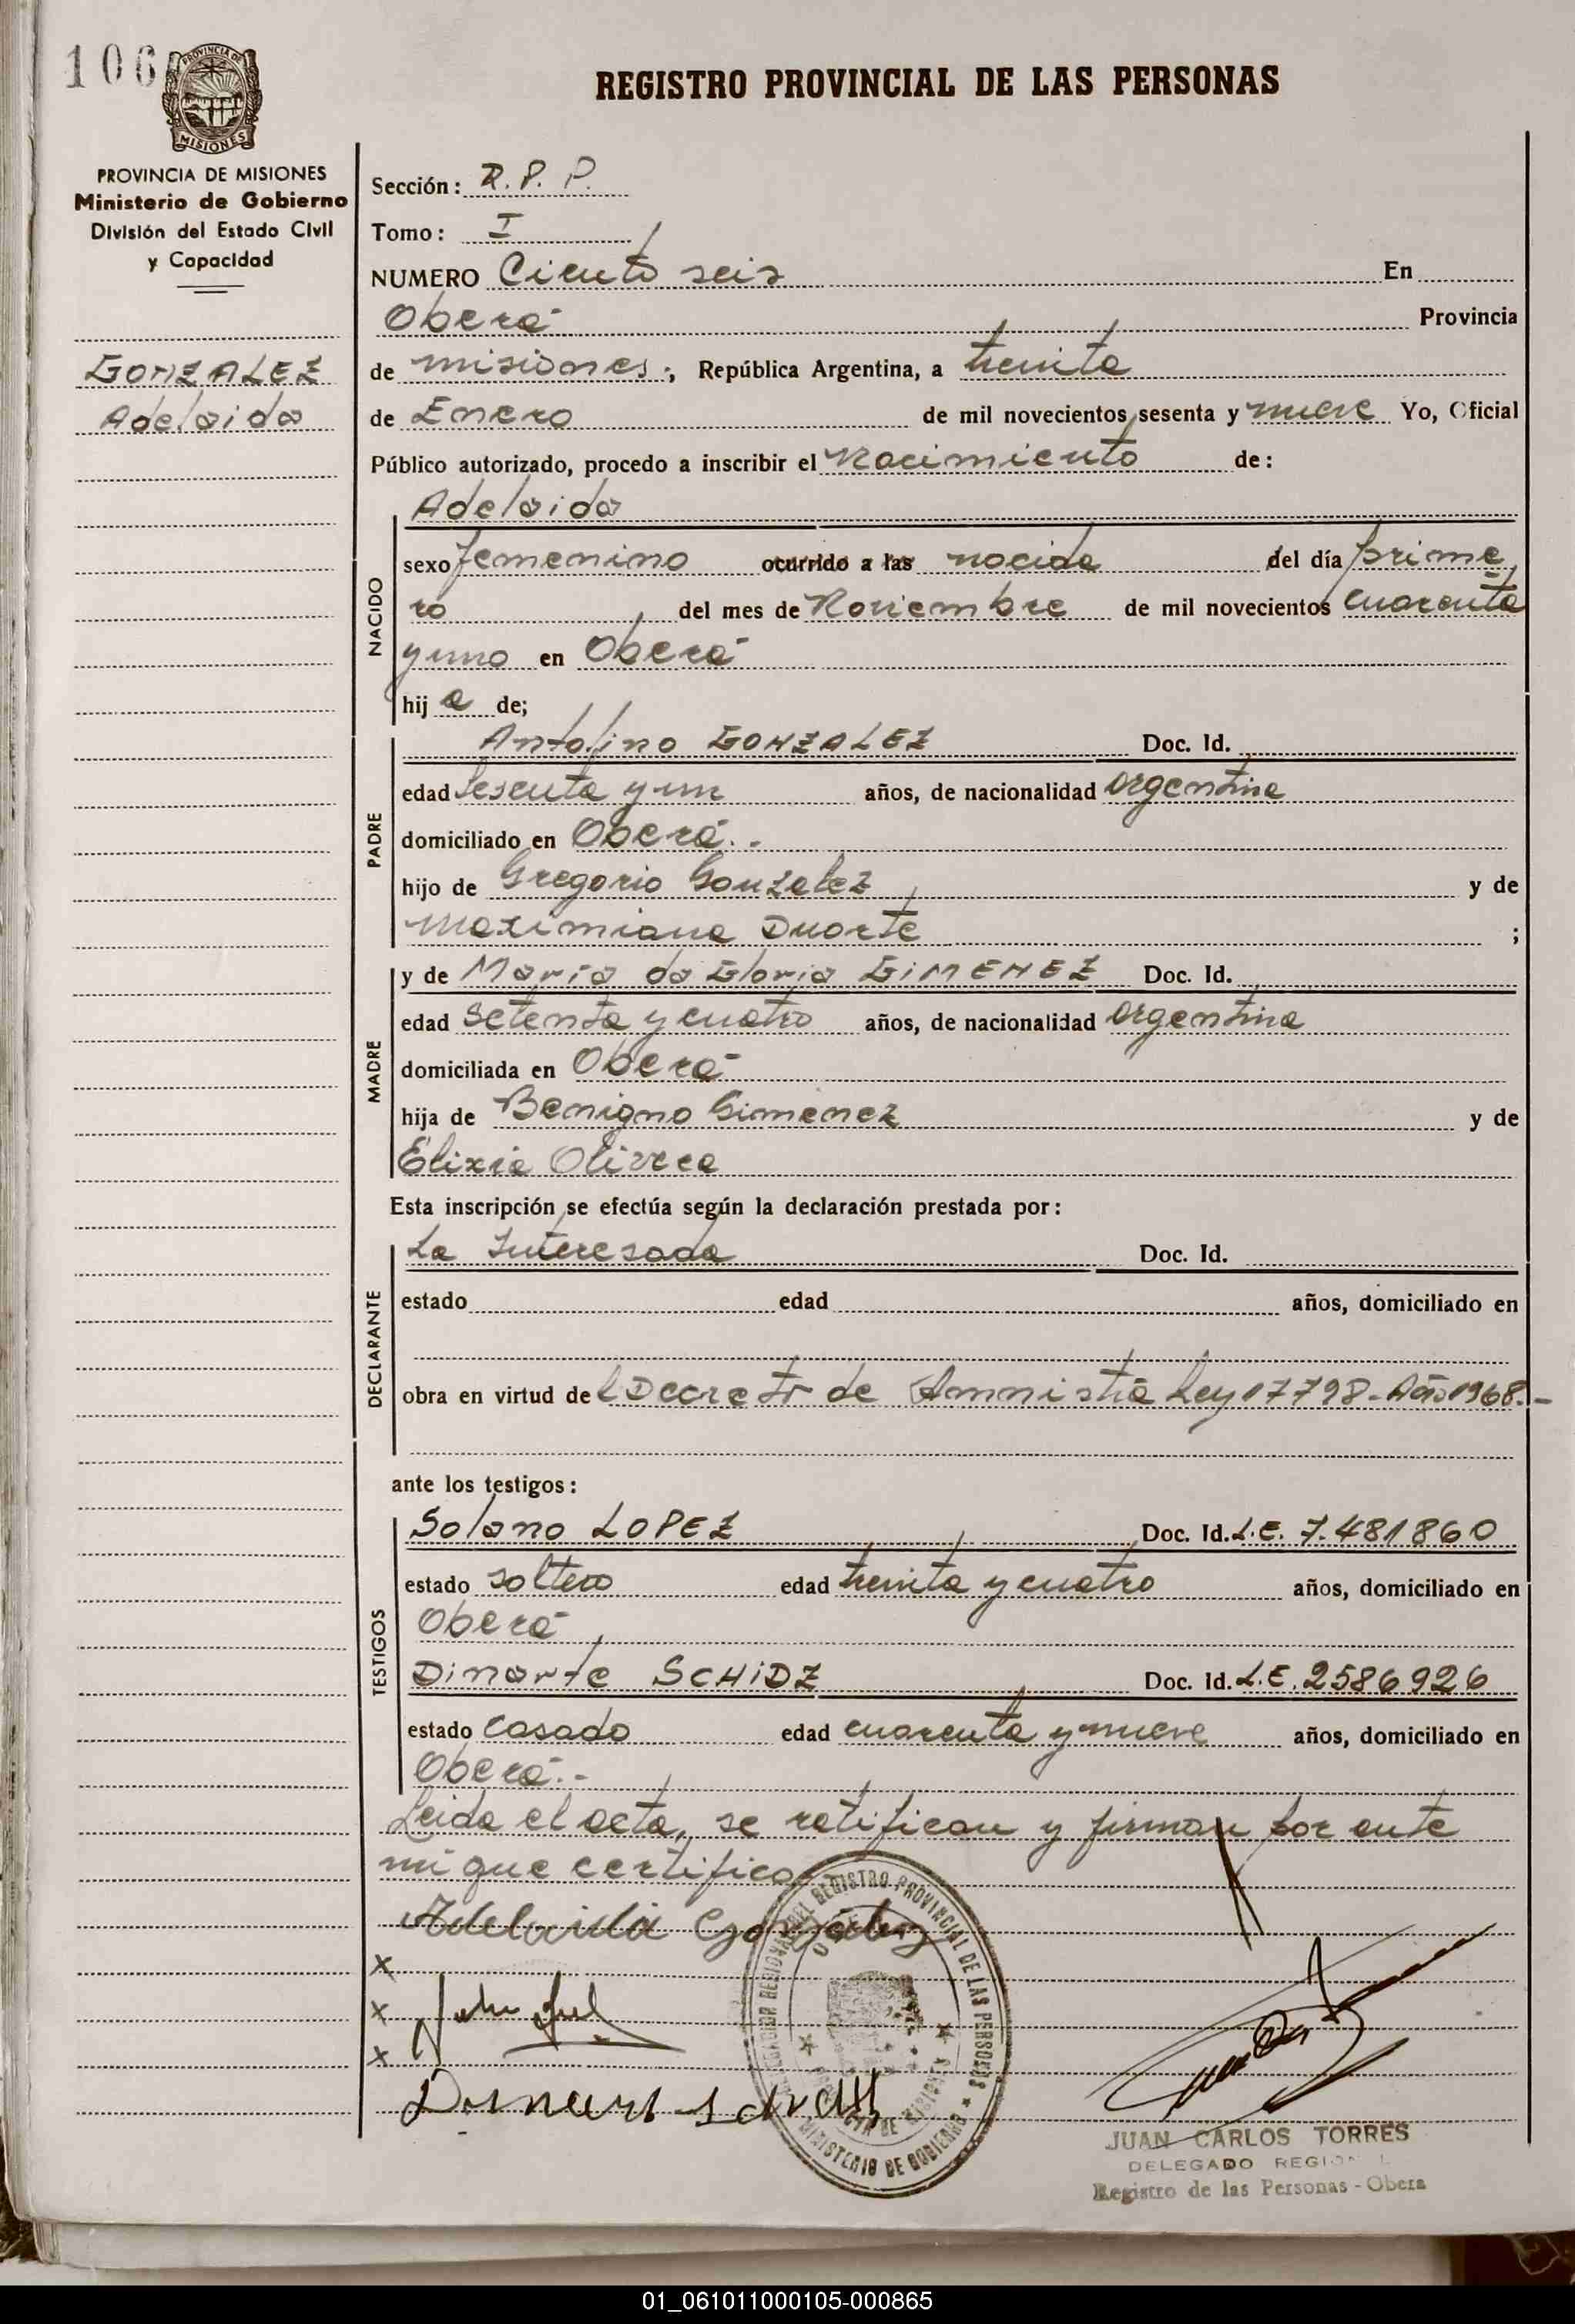 106
PROVINCIA DE
MISIONES
REGISTRO PROVINCIAL DE LAS PERSONAS
PROVINCIA DE MISIONES
Ministerio de Gobierno
División del Estado Civil
y Capacidad
GONZALEZ
Adelaida
Sección: R. P. P.
Tomo: I
NUMERO Ciento seis En
Oberá Provincia
de misiones; República Argentina, a treinta
de Enero de mil novecientos sesenta y nueve Yo, Oficial
Público autorizado, procedo a inscribir el Nacimiento de:
Adelaida
NACIDO
sexo femenino ocurrido a las nacida del día prime
ro del mes de Noviembre de mil novecientos cuarenta
y uno en Oberá
hij a de;
PADRE
Antolino GONZALEZ Doc. Id.
edad sesenta y un años, de nacionalidad argentina
domiciliado en Oberá.-
hijo de Gregorio Gonzalez y de
Maximiana Duarte ;
MADRE
y de Maria da Gloria GIMENEZ Doc. Id.
edad setenta y cuatro años, de nacionalidad argentina
domiciliada en Oberá
hija de Benigno Gimenez y de
Elixia Olivera
Esta inscripción se efectúa según la declaración prestada por:
DECLARANTE
La Interesada Doc. Id.
estado edad años, domiciliado en
obra en virtud de l Decreto de Amnistia Ley 17798-Año 1968.-
ante los testigos:
TESTIGOS
Solano LOPEZ Doc. Id. L.E. 7.481860
estado soltero edad treinta y cuatro años, domiciliado en
Oberá
Dinarte SCHIDZ Doc. Id. L.E. 2586926
estado casado edad cuarenta y nueve años, domiciliado en
Oberá.-
Leida el acta, se ratifican y firman por ante
mi que certifico
Adelaida González
x
x
x
DEL REGISTRO PROVINCIAL DE LAS PERSONAS
MINISTERIO DE GOBIERNO
JUAN CARLOS TORRES
DELEGADO REGIONAL
Registro de las Personas - Obera
01_061011000105-000865